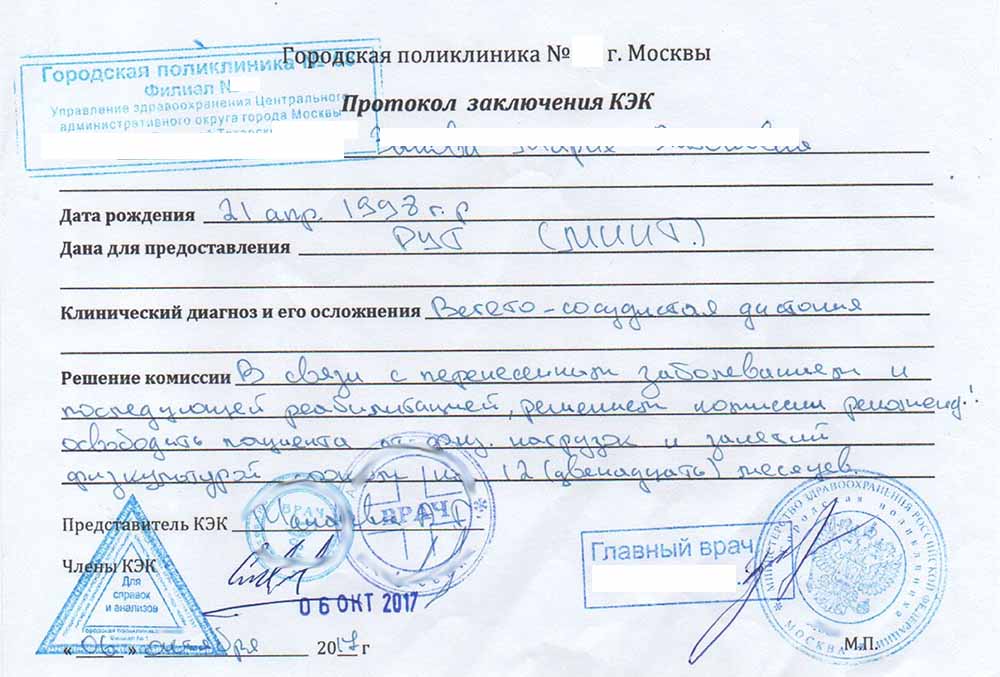 Городская поликлиника № г. Москвы
Городская поликлиника №
Филиал №
Управление здравоохранения Центрального
административного округа города Москвы
Протокол заключения КЭК
Дата рождения 21 апр. 1998 г.р
Дана для предоставления РУТ (МИИТ.)
Клинический диагноз и его осложнения Вегето-сосудистая дистония
Решение комиссии В связи с перенесенным заболеванием и
последующей реабилитацией, решением комиссии рекоменд.:
освободить пациента от физ. нагрузок и занятий
физкультурой сроком на 12 (двенадцать) месяцев.
Представитель КЭК
ВРАЧ
ВРАЧ
Члены КЭК
Для
справок
и анализов
Городская поликлиника
Филиал № 1
06 ОКТ 2017
Главный врач
МИНИСТЕРСТВО ЗДРАВООХРАНЕНИЯ РОССИЙСКОЙ ФЕДЕРАЦИИ
городская поликлиника
МОСКВА
« 06 » октября 2017 г
М.П.